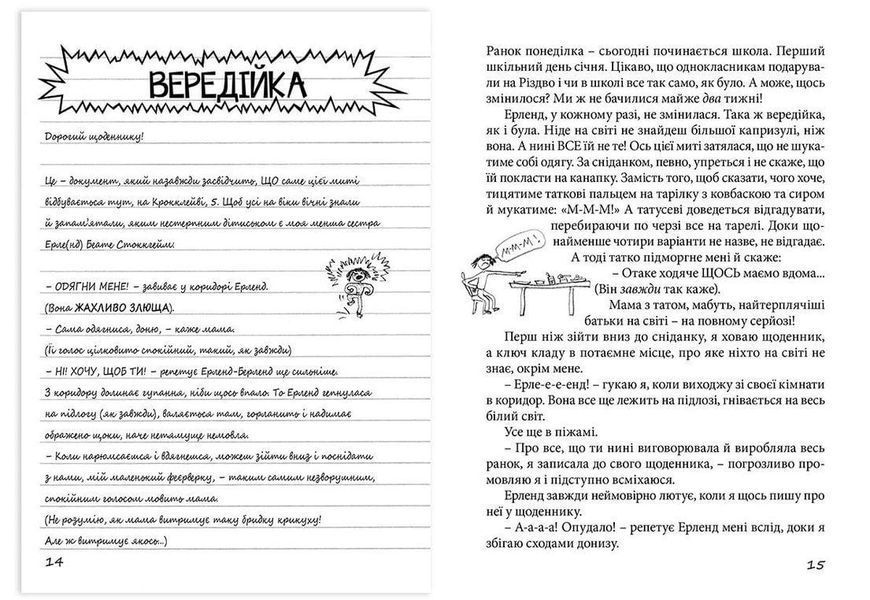 ВЕРЕДІЙКА
Дорогий щоденнику!
Це – документ, який назавжди засвідчить, ЩО саме цієї миті
відбувається тут, на Крокклейві, 5. Щоб усі на віки вічні знали
й запам'ятали, яким нестерпним дітиськом є моя менша сестра
Ерле(нд) Беате Стокклейм.
– ОДЯГНИ МЕНЕ! – завиває у коридорі Ерленд.
(Вона ЖАХЛИВО ЗЛЮЩА).
– Сама одягнися, доню, – каже мама.
(Її голос цілковито спокійний, такий, як завжди)
– НІ! ХОЧУ, ЩОБ ТИ! – репетує Ерленд-Берленд ще сильніше.
З коридору долинає гупання, ніби щось впало. То Ерленд гепнулася
на підлогу (як завжди), валяється там, горланить і надимає
ображено щоки, наче нетямуще немовля.
– Коли нарюмсаєшся і вдягнешся, можеш зійти вниз і поснідати
з нами, мій маленький феєрверку, – таким самим незворушним,
спокійним голосом мовить мама.
(Не розумію, як мама витримує таку бридку крикуху!
Але ж витримує якось...)
14
Ранок понеділка – сьогодні починається школа. Перший
шкільний день січня. Цікаво, що однокласникам подарува-
ли на Різдво і чи в школі все так само, як було. А може, щось
змінилося? Ми ж не бачилися майже два тижні!
Ерленд, у кожному разі, не змінилася. Така ж вередійка,
як і була. Ніде на світі не знайдеш більшої капризулі, ніж
вона. А нині ВСЕ їй не те! Ось цієї миті затялася, що не шука-
тиме собі одягу. За сніданком, певно, упреться і не скаже, що
їй покласти на канапку. Замість того, щоб сказати, чого хоче,
тицятиме таткові пальцем на тарілку з ковбаскою та сиром
й мукатиме: «М-М-М!» А татусеві доведеться відгадувати,
перебираючи по черзі все на тарелі. Доки що-
найменше чотири варіанти не назве, не відгадає.
М-М-М!
А тоді татко підморгне мені й скаже:
– Отаке ходяче ЩОСЬ маємо вдома...
(Він завжди так каже).
Мама з татом, мабуть, найтерплячіші
батьки на світі – на повному серйозі!
Перш ніж зійти вниз до сніданку, я ховаю щоденник,
а ключ кладу в потаємне місце, про яке ніхто на світі не
знає, окрім мене.
– Ерле-е-е-енд! – гукаю я, коли виходжу зі своєї кімнати
в коридор. Вона все ще лежить на підлозі, гнівається на весь
білий світ.
Усе ще в піжамі.
– Про все, що ти нині виговорювала й виробляла весь
ранок, я записала до свого щоденника, – погрозливо про-
мовляю я і підступно всміхаюся.
Ерленд завжди неймовірно лютує, коли я щось пишу про
неї у щоденнику.
– А-а-а-а! Опудало! – репетує Ерленд мені вслід, доки я
збігаю сходами донизу.
15